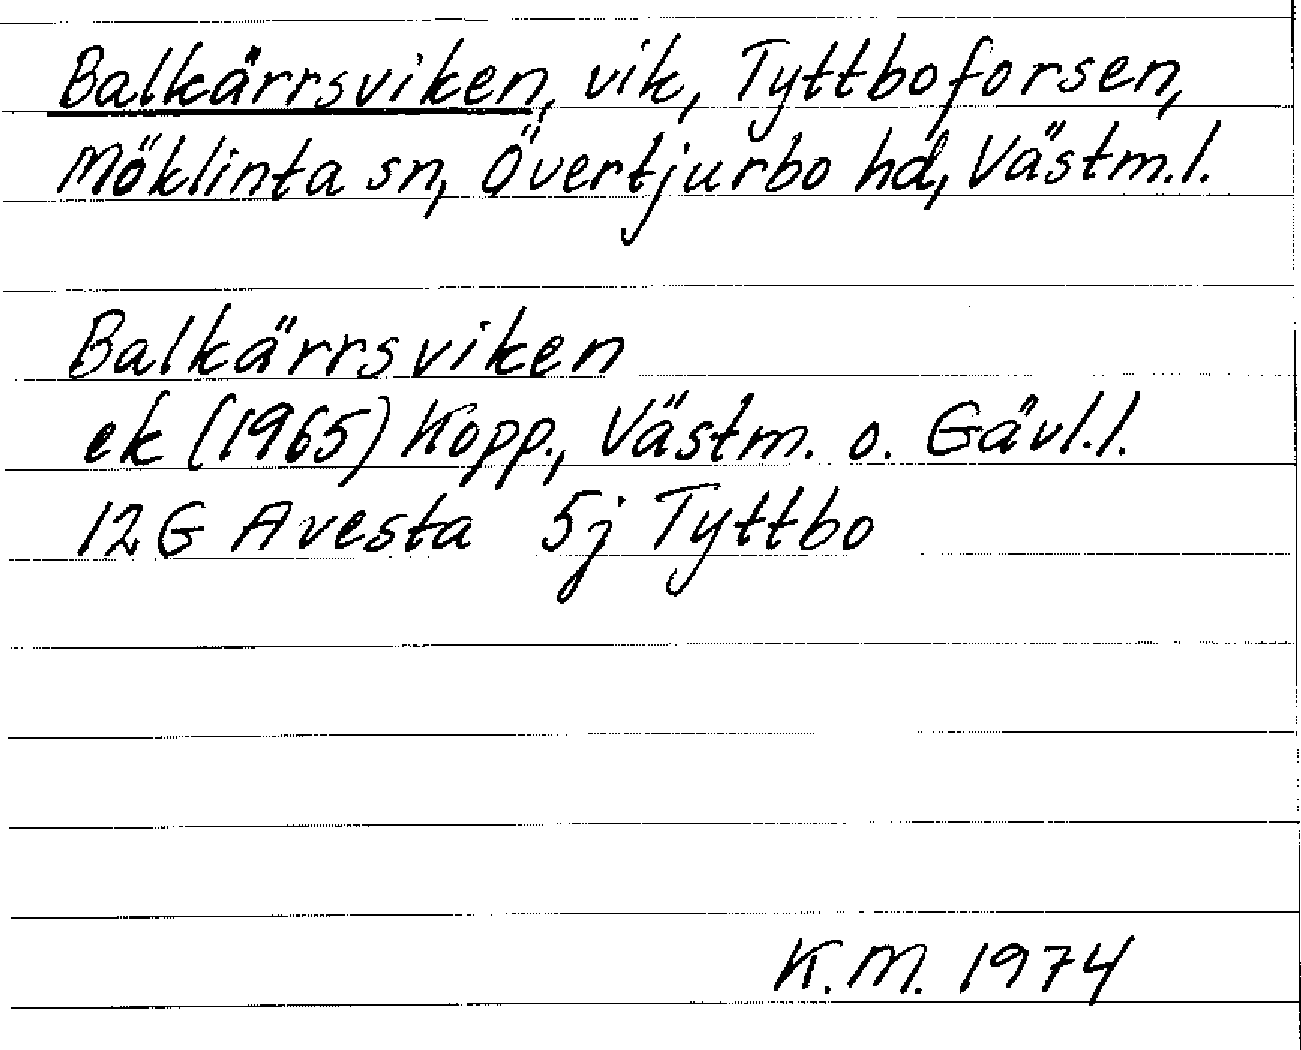 Balkärrsviken, vik, Tyttboforsen,
Möklinta sn, Övertjurbo hd, Västm.l.
Balkärrsviken
ek (1965) Kopp., Västm. o. Gävl.l.
12G Avesta 5j Tyttbo
K.M. 1974